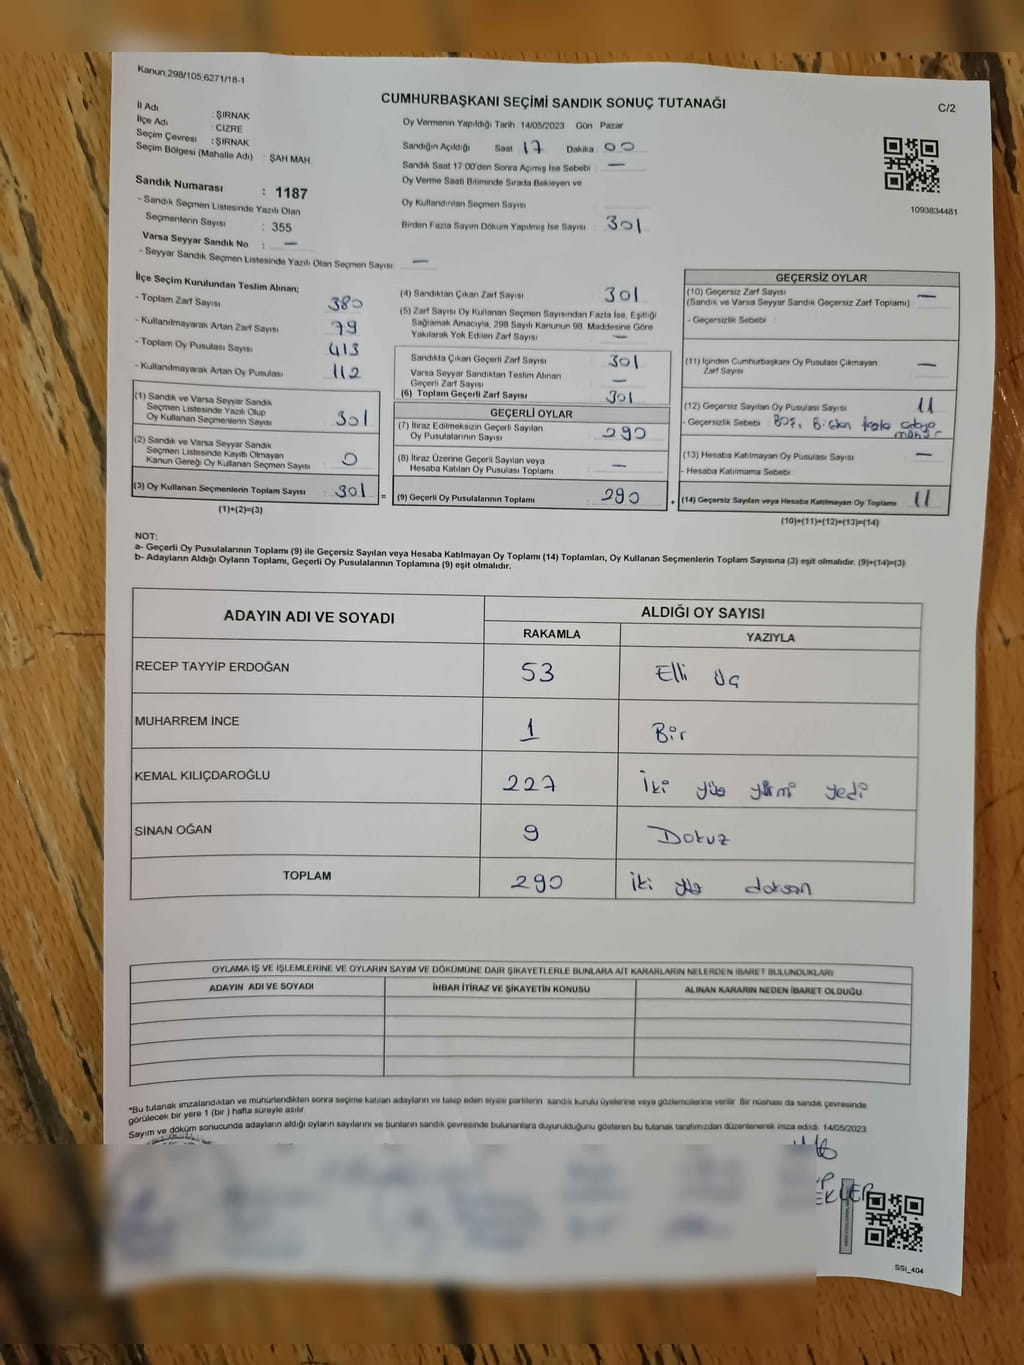 Kanun,298/105,6271/18-1
C/2
CUMHURBAŞKANI SEÇİMİ SANDIK SONUÇ TUTANAĞI
İl Adı : ŞIRNAK
İlçe Adı : CİZRE
Seçim Çevresi : ŞIRNAK
Seçim Bölgesi (Mahalle Adı) : ŞAH MAH
Sandık Numarası : 1187
- Sandık Seçmen Listesinde Yazılı Olan
Seçmenlerin Sayısı : 355
Varsa Seyyar Sandık No : —
- Seyyar Sandık Seçmen Listesinde Yazılı Olan Seçmen Sayısı : —
Oy Vermenin Yapıldığı Tarih : 14/05/2023 Gün Pazar
Sandığın Açıldığı Saat 17 Dakika 00
Sandık Saat 17:00'den Sonra Açımış İse Sebebi : —
Oy Verme Saati Bitiminde Sırada Bekleyen ve
Oy Kullandırılan Seçmen Sayısı :
Birden Fazla Sayım Döküm Yapılmış İse Sayısı : 301
1093834481
İlçe Seçim Kurulundan Teslim Alınan;
- Toplam Zarf Sayısı : 380
- Kullanılmayarak Artan Zarf Sayısı : 79
- Toplam Oy Pusulası Sayısı : 413
- Kullanılmayarak Artan Oy Pusulası : 112
(1) Sandık ve Varsa Seyyar Sandık
Seçmen Listesinde Yazılı Olup
Oy Kullanan Seçmenlerin Sayısı : 301
(2) Sandık ve Varsa Seyyar Sandık
Seçmen Listesinde Kayıtlı Olmayan
Kanun Gereği Oy Kullanan Seçmen Sayısı : 0
(3) Oy Kullanan Seçmenlerin Toplam Sayısı : 301
(1)+(2)=(3)
(4) Sandıktan Çıkan Zarf Sayısı : 301
(5) Zarf Sayısı Oy Kullanan Seçmen Sayısından Fazla İse, Eşitliği
Sağlamak Amacıyla, 298 Sayılı Kanunun 98. Maddesine Göre
Yakılarak Yok Edilen Zarf Sayısı : —
Sandıkta Çıkan Geçerli Zarf Sayısı : 301
Varsa Seyyar Sandıktan Teslim Alınan
Geçerli Zarf Sayısı : —
(6) Toplam Geçerli Zarf Sayısı : 301
GEÇERLİ OYLAR
(7) İtiraz Edilmeksizin Geçerli Sayılan
Oy Pusulalarının Sayısı : 290
(8) İtiraz Üzerine Geçerli Sayılan veya
Hesaba Katılan Oy Pusulası Toplamı : —
= (9) Geçerli Oy Pusulalarının Toplamı : 290
GEÇERSİZ OYLAR
(10) Geçersiz Zarf Sayısı : —
(Sandık ve Varsa Seyyar Sandık Geçersiz Zarf Toplamı)
- Geçersizlik Sebebi :
(11) İçinden Cumhurbaşkanı Oy Pusulası Çıkmayan
Zarf Sayısı : —
(12) Geçersiz Sayılan Oy Pusulası Sayısı : 11
- Geçersizlik Sebebi : Boş, Birden fazla adaya
mühür
(13) Hesaba Katılmayan Oy Pusulası Sayısı : —
- Hesaba Katılmama Sebebi :
+ (14) Geçersiz Sayılan veya Hesaba Katılmayan Oy Toplamı : 11
(10)+(11)+(12)+(13)=(14)
NOT:
a- Geçerli Oy Pusulalarının Toplamı (9) ile Geçersiz Sayılan veya Hesaba Katılmayan Oy Toplamı (14) Toplamları, Oy Kullanan Seçmenlerin Toplam Sayısına (3) eşit olmalıdır. (9)+(14)=(3)
b- Adayların Aldığı Oyların Toplamı, Geçerli Oy Pusulalarının Toplamına (9) eşit olmalıdır.
ADAYIN ADI VE SOYADI ALDIĞI OY SAYISI
RAKAMLA YAZIYLA
RECEP TAYYİP ERDOĞAN 53 Elli üç
MUHARREM İNCE 1 Bir
KEMAL KILIÇDAROĞLU 227 İki yüz yirmi yedi
SİNAN OĞAN 9 Dokuz
TOPLAM 290 iki yüz doksan
OYLAMA İŞ VE İŞLEMLERİNE VE OYLARIN SAYIM VE DÖKÜMÜNE DAİR ŞİKAYETLERLE BUNLARA AİT KARARLARIN NELERDEN İBARET BULUNDUKLARI
ADAYIN ADI VE SOYADI İHBAR İTİRAZ VE ŞİKAYETİN KONUSU ALINAN KARARIN NEDEN İBARET OLDUĞU
*Bu tutanak imzalandıktan ve mühürlendikten sonra seçime katılan adayların ve talep eden siyasi partilerin sandık kurulu üyelerine veya gözlemcilerine verilir. Bir nüshası da sandık çevresinde
görülecek bir yere 1 (bir ) hafta süreyle asılır.
Sayım ve döküm sonucunda adayların aldığı oyların sayılarını ve bunların sandık çevresinde bulunanlara duyurulduğunu gösteren bu tutanak tarafımızdan düzenlenerek imza edildi. 14/05/2023
SSI_404